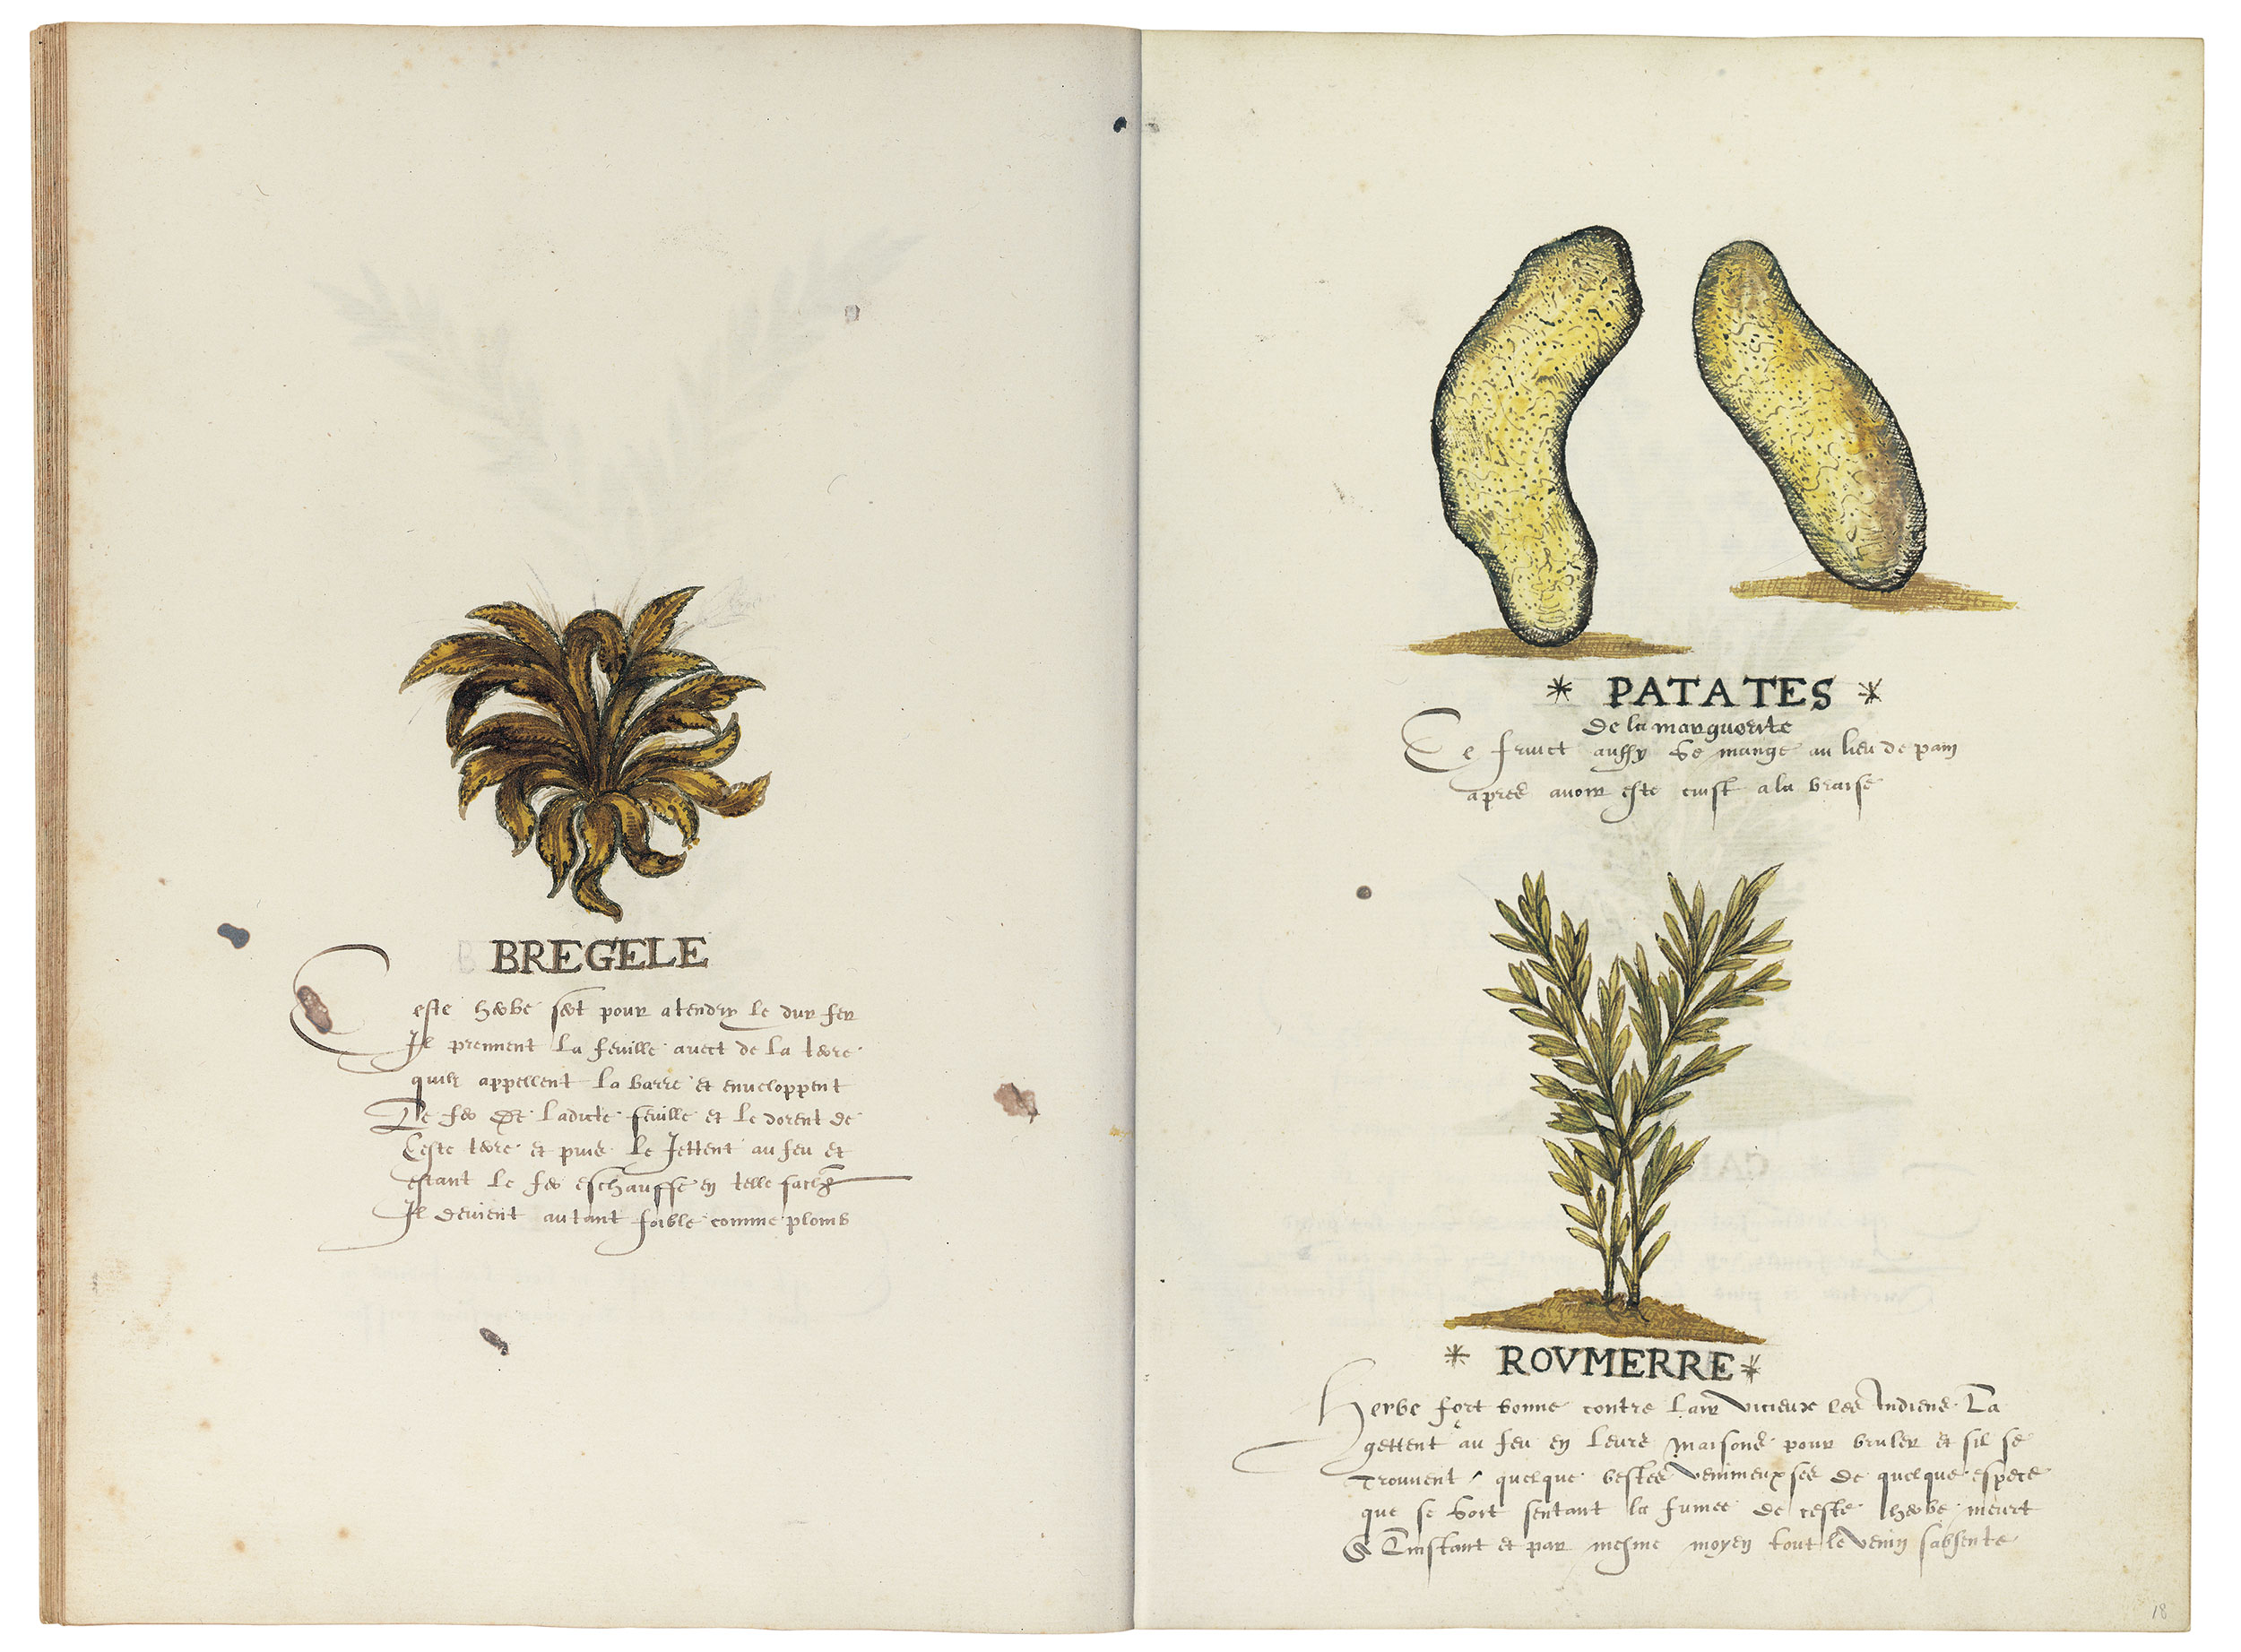 BREGELE
Ceste herbe sert pour atendrir le dur fer
Il prennent la feuille avect de la terre
quilz appellent la barre et enveloppent
Le fer de ladicte feuille et le dorent de
Ceste terre et puis le Jettent au feu et
estant le fer eschauffe en telle
Il devient autant foible comme plomb
* PATATES *
De la marguerite
Ce fruict aussy se mange au lieu de pain
apres avoir este cuist a la braise
* ROVMERRE *
Herbe fort bonne contre lair vicieux les Indiens La
gettent au feu en leurs maisons pour bruler et sil se
Trouvent quelque bestes venimeuxses de quelque espece
que se soit sentant la fumee de ceste herbe meurt
a Linstant et par mesme moyen tout le venin sabsente
18